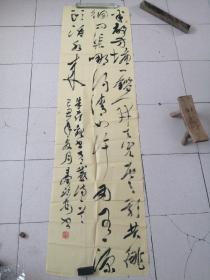 半亩方塘一鉴开天光云影共徘
徊问渠哪得清如许为有源
头活水来
朱熹观书有感诗一首